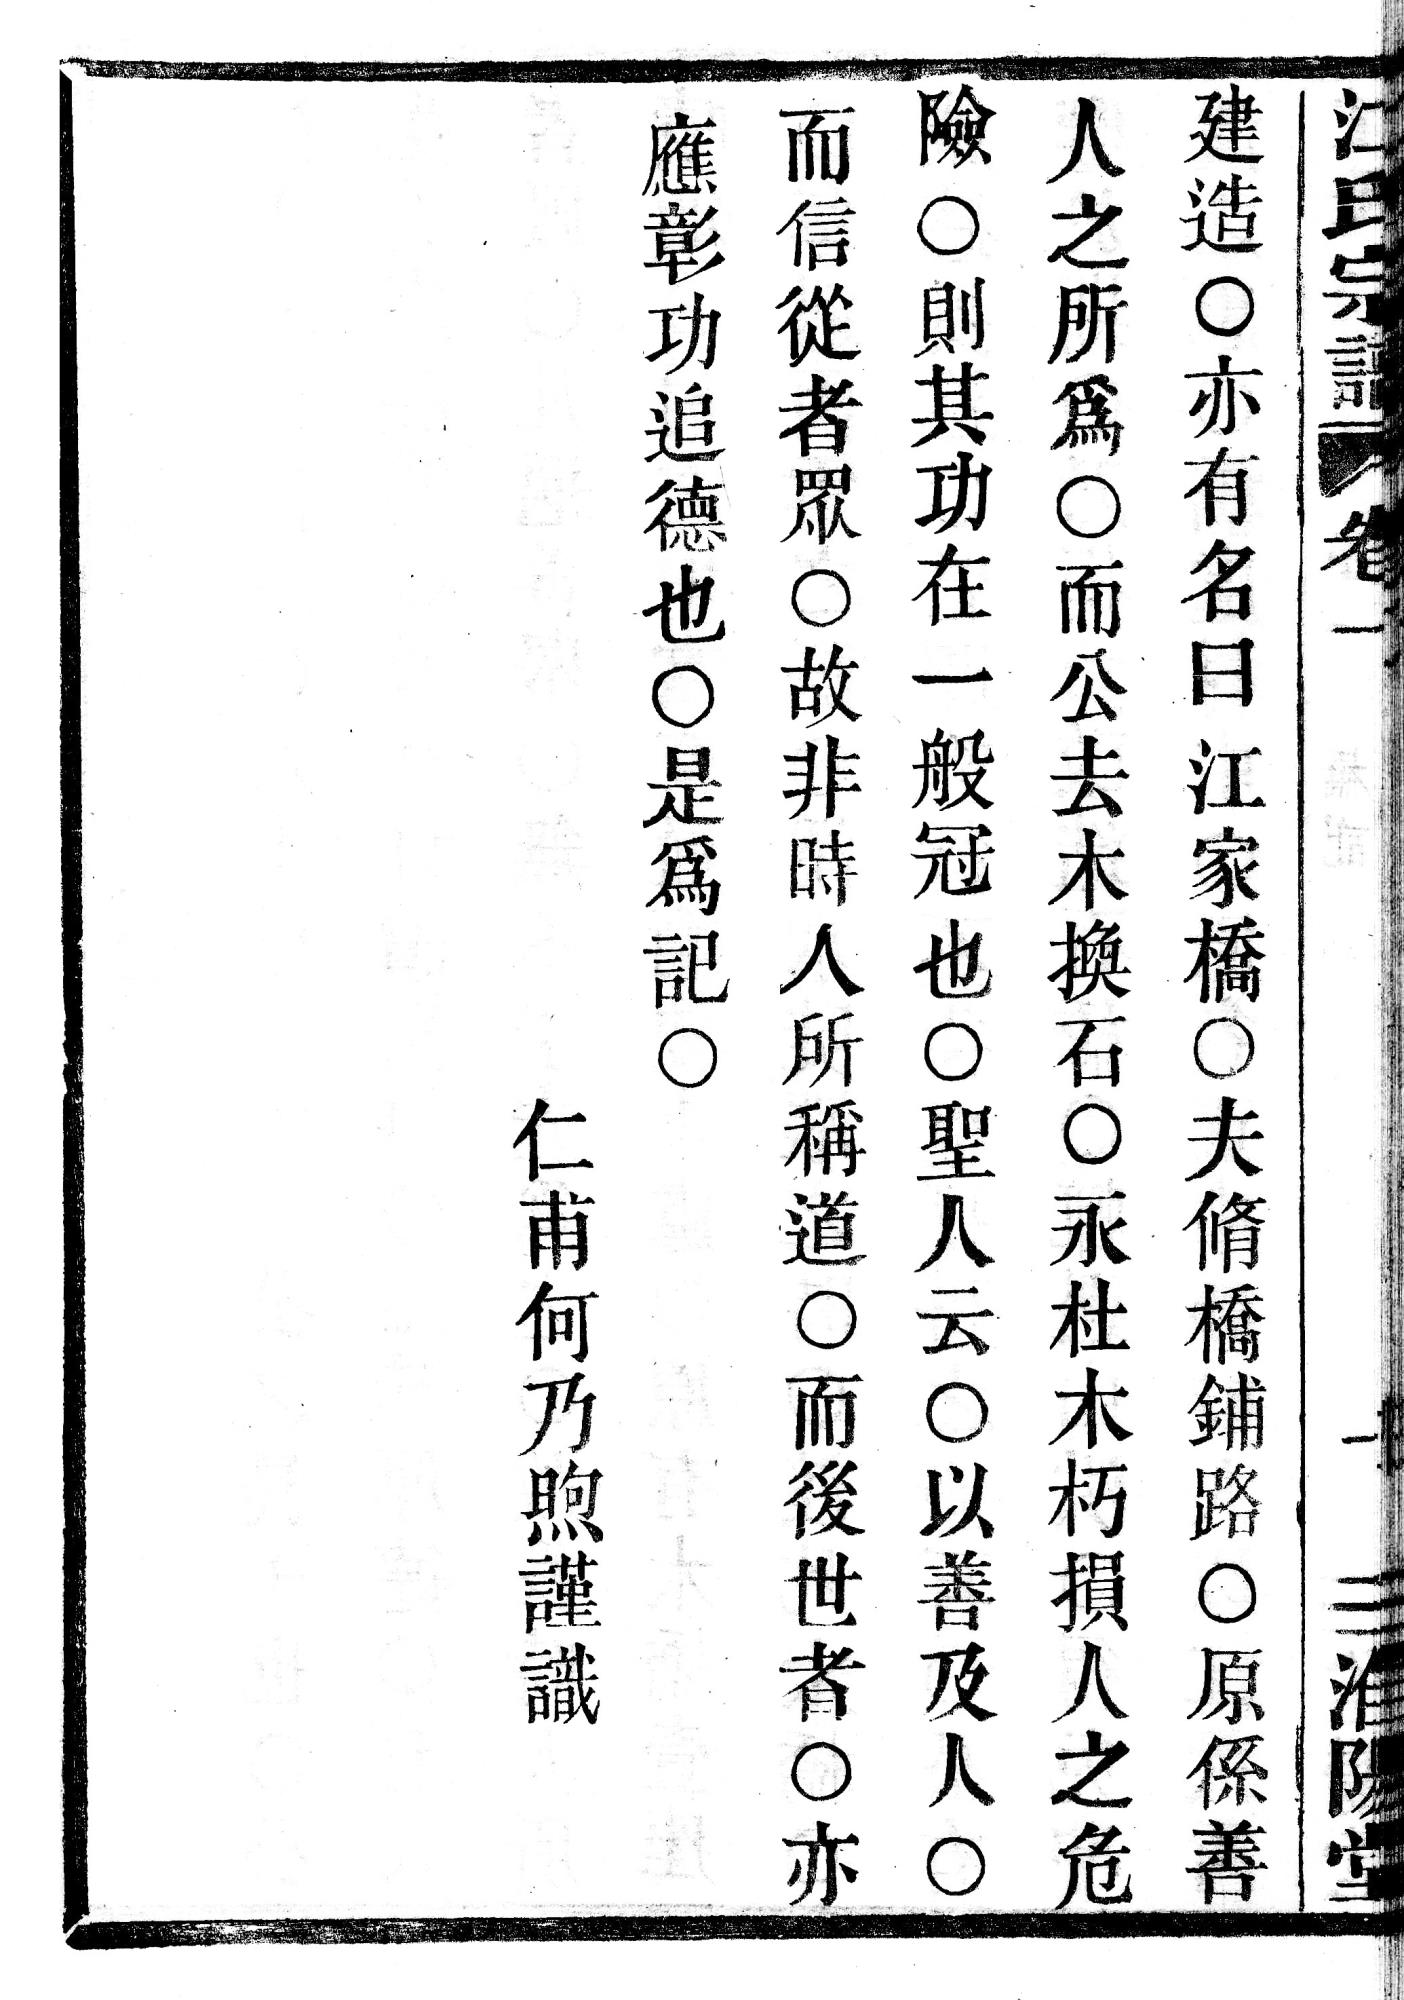 江氏宗譜 卷一 二 淮陽堂
建造○亦有名曰江家橋○夫脩橋鋪路○原係善
人之所爲○而公去木換石○永杜木朽損人之危
險○則其功在一般冠也○聖人云○以善及人○
而信從者眾○故非時人所稱道○而後世者○亦
應彰功追德也○是爲記○
仁甫何乃煦謹識